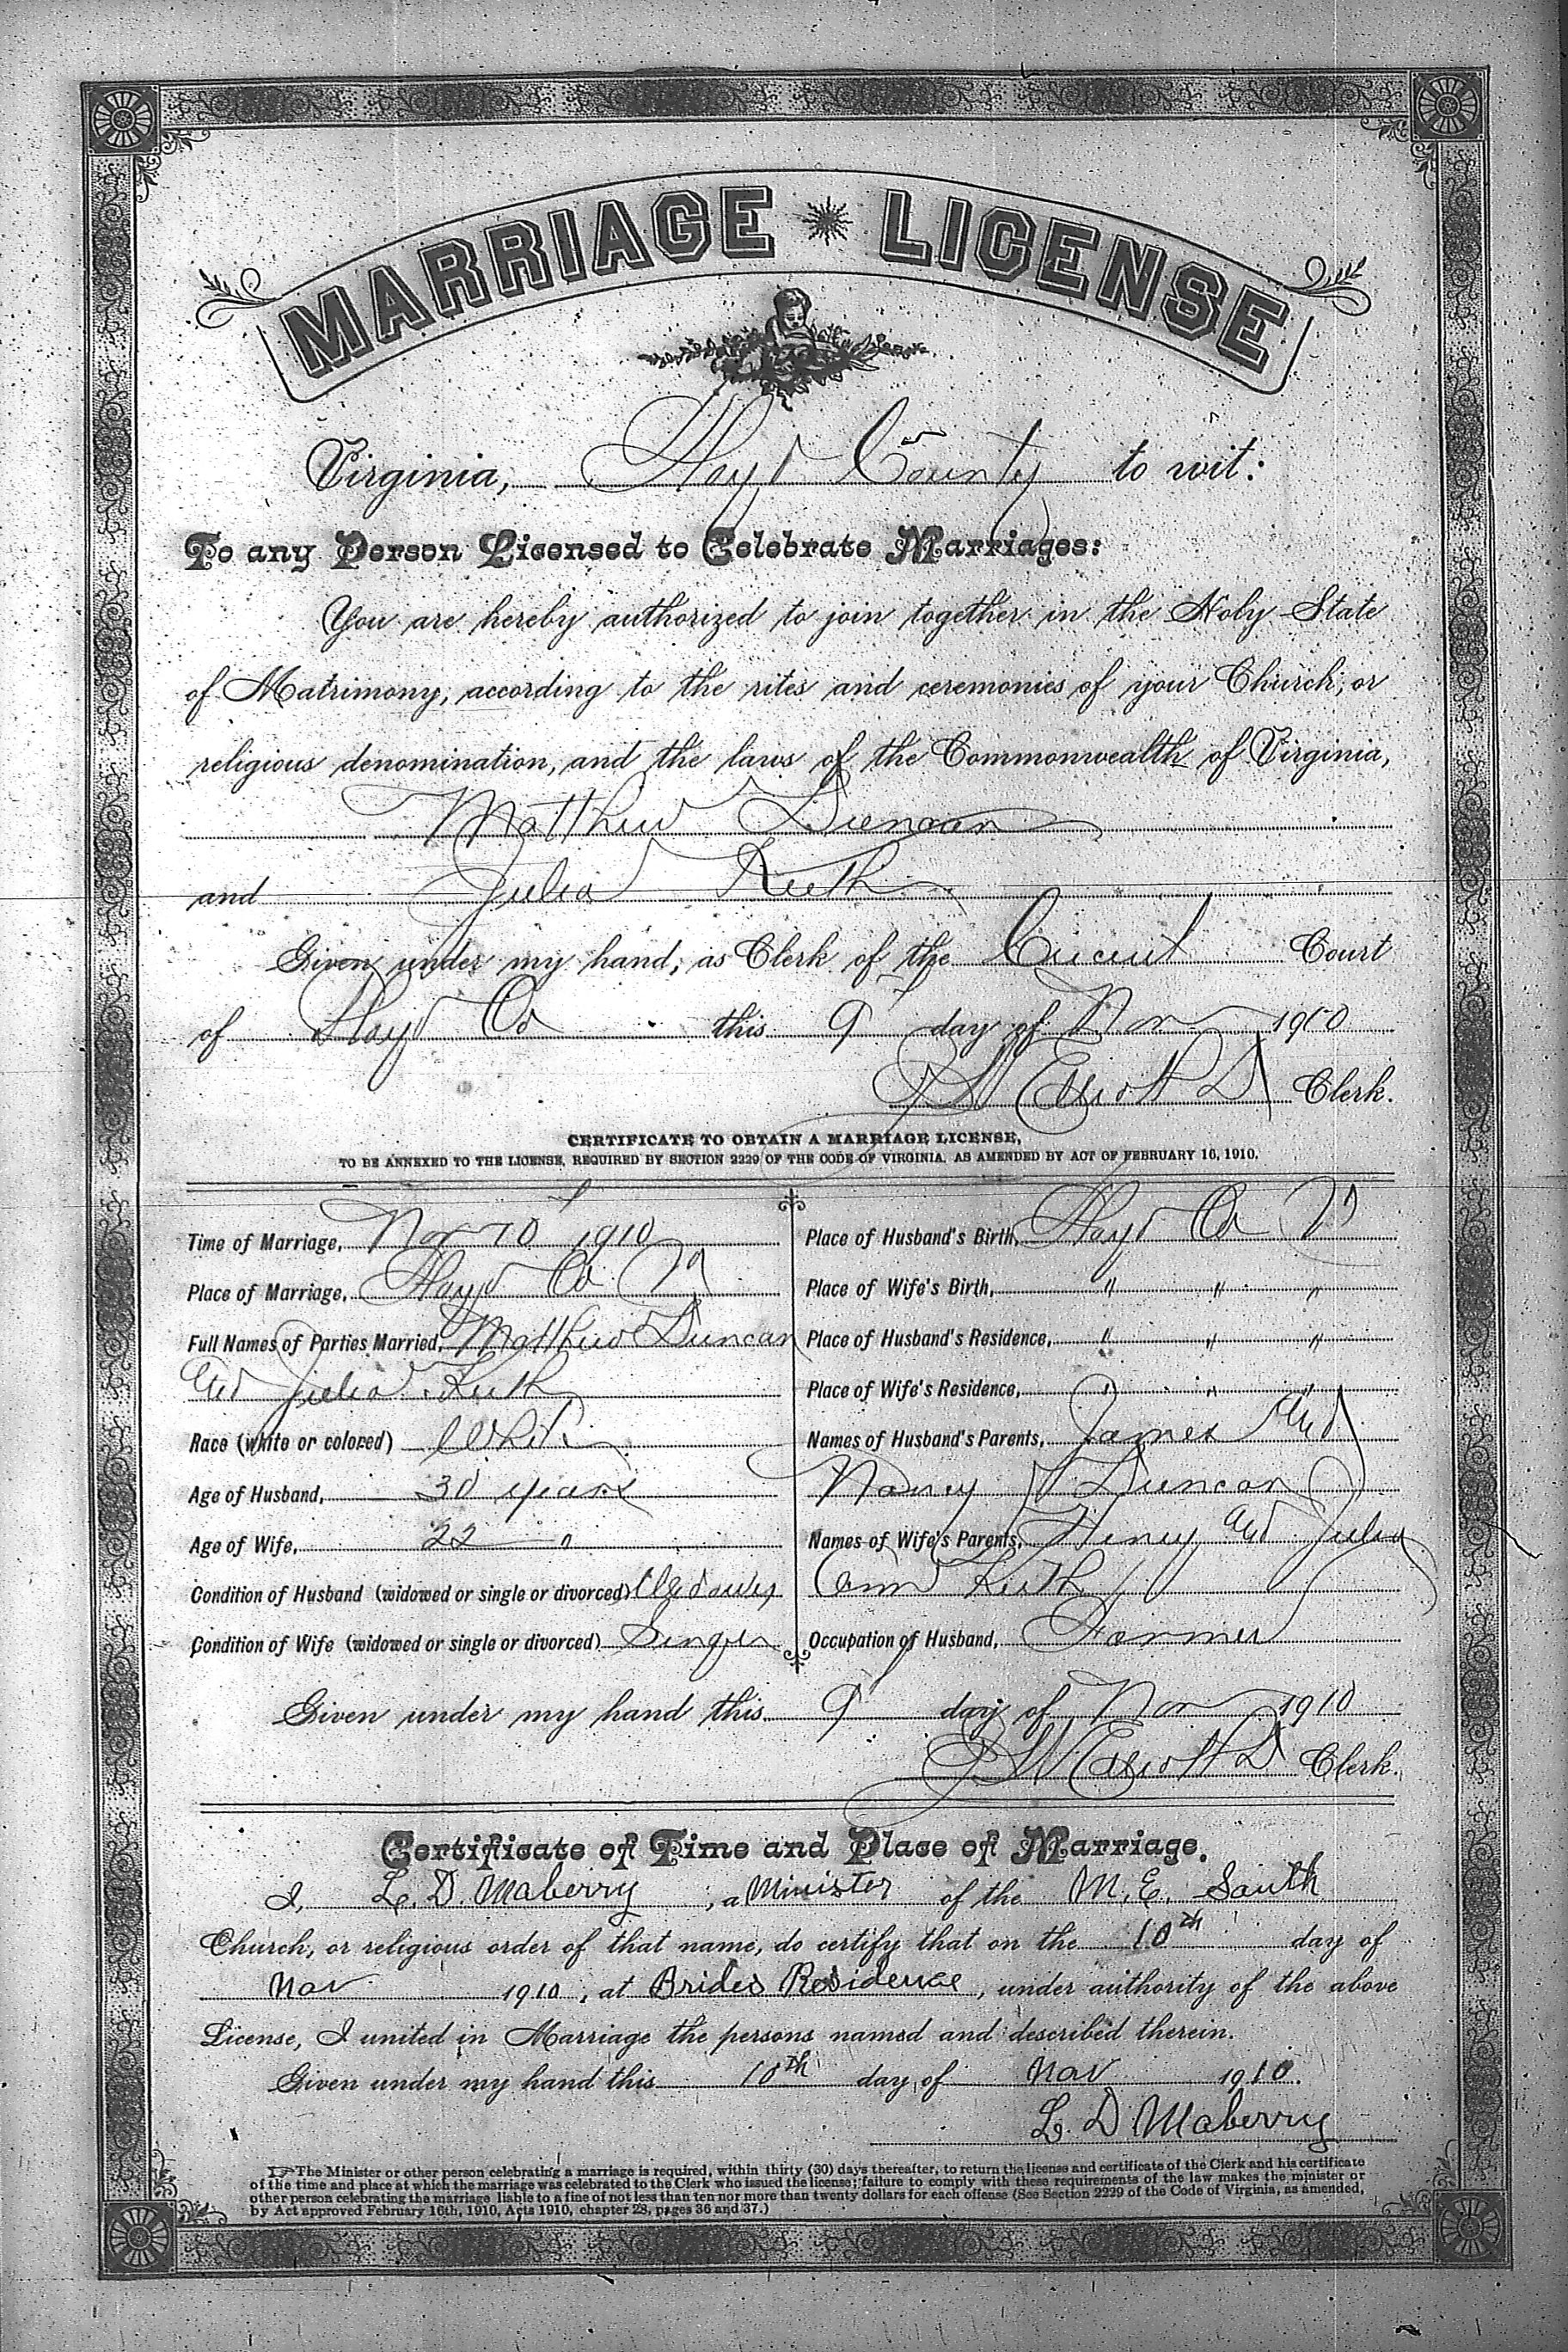 MARRIAGE LICENSE
Virginia, Floyd County to wit:
To any Person Licensed to Celebrate Marriages:
You are hereby authorized to join together in the Holy State
of Matrimony, according to the rites and ceremonies of your Church, or
religious denomination, and the laws of the Commonwealth of Virginia,
Matthew Duncan
and Julia Keith
Given under my hand, as Clerk of the Circuit Court
of Floyd Co this 9 day of Nov 1910
Clerk.
CERTIFICATE TO OBTAIN A MARRIAGE LICENSE,
TO BE ANNEXED TO THE LICENSE, REQUIRED BY SECTION 2229 OF THE CODE OF VIRGINIA, AS AMENDED BY ACT OF FEBRUARY 16, 1910.
Time of Marriage, Nov 10 1910
Place of Marriage, Floyd Co Va
Full Names of Parties Married, Matthew Duncan
and Julia Keith
Race (white or colored) White
Age of Husband, 30 years
Age of Wife, 22 "
Condition of Husband (widowed or single or divorced) Widower
Condition of Wife (widowed or single or divorced) Single
Place of Husband's Birth, Floyd Co Va
Place of Wife's Birth, " " "
Place of Husband's Residence, " " "
Place of Wife's Residence, " " "
Names of Husband's Parents, James and
Nancy Duncan
Names of Wife's Parents, Henry and Julia
Ann Keith
Occupation of Husband, Farmer
Given under my hand this 9 day of Nov 1910
Clerk.
Certificate of Time and Place of Marriage.
I, L. D. Maberry, a Minister of the M. E. South
Church, or religious order of that name, do certify that on the 10th day of
Nov 1910, at Brides Residence, under authority of the above
License, I united in Marriage the persons named and described therein.
Given under my hand this 10th day of Nov 1910.
L. D Maberry
☞The Minister or other person celebrating a marriage is required, within thirty (30) days thereafter, to return the license and certificate of the Clerk and his certificate
of the time and place at which the marriage was celebrated to the Clerk who issued the license; failure to comply with these requirements of the law makes the minister or
other person celebrating the marriage liable to a fine of not less than ten nor more than twenty dollars for each offense (See Section 2229 of the Code of Virginia, as amended,
by Act approved February 16th, 1910, Acts 1910, chapter 28, pages 36 and 37.)